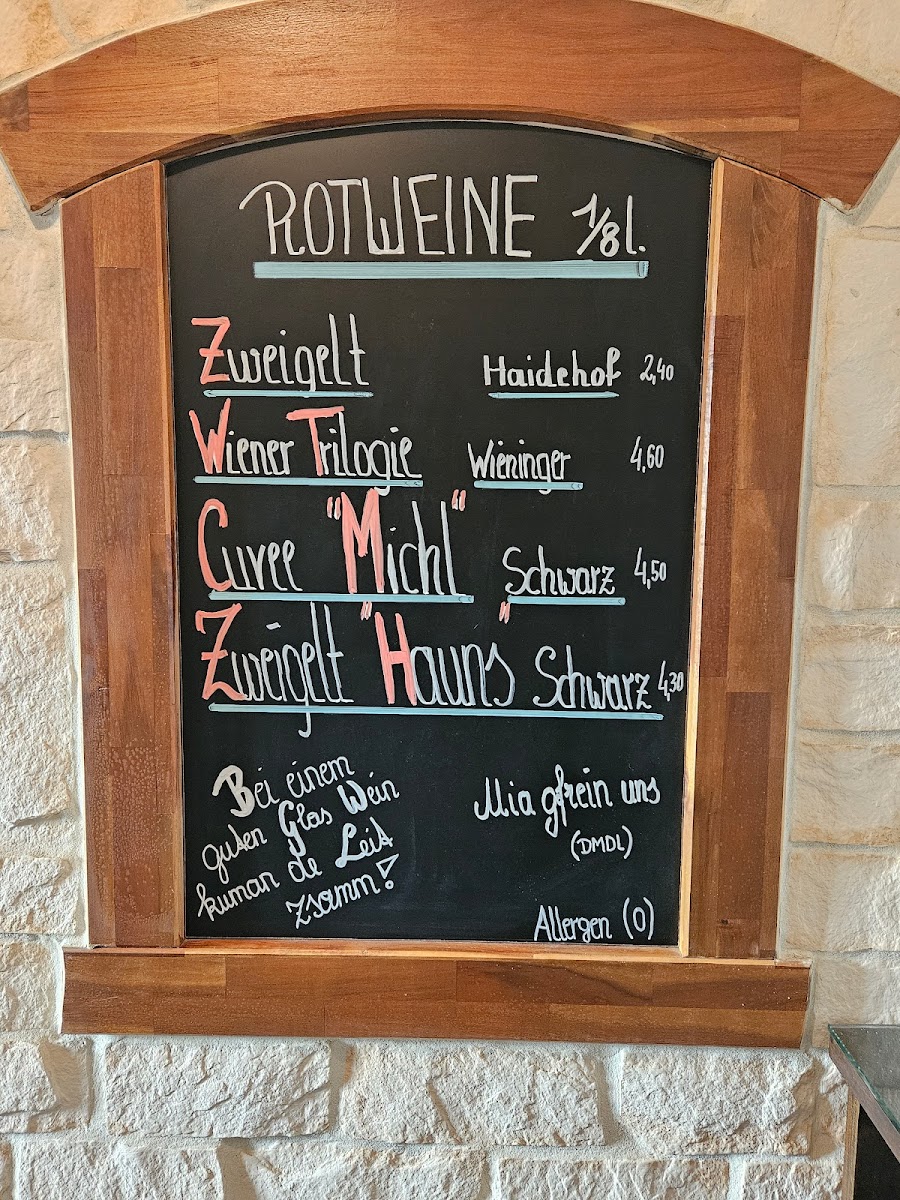 ROTWEINE 1/8 l.
Zweigelt Haidehof 2,40
Wiener Trilogie Wieninger 4,60
Cuvee "Michl" Schwarz 4,50
Zweigelt "Hauns" Schwarz 4,30
Bei einem
guten Glas Wein
kuman de Leit
zsamm!
Mia gfrein uns
(DMDL)
Allergen (O)